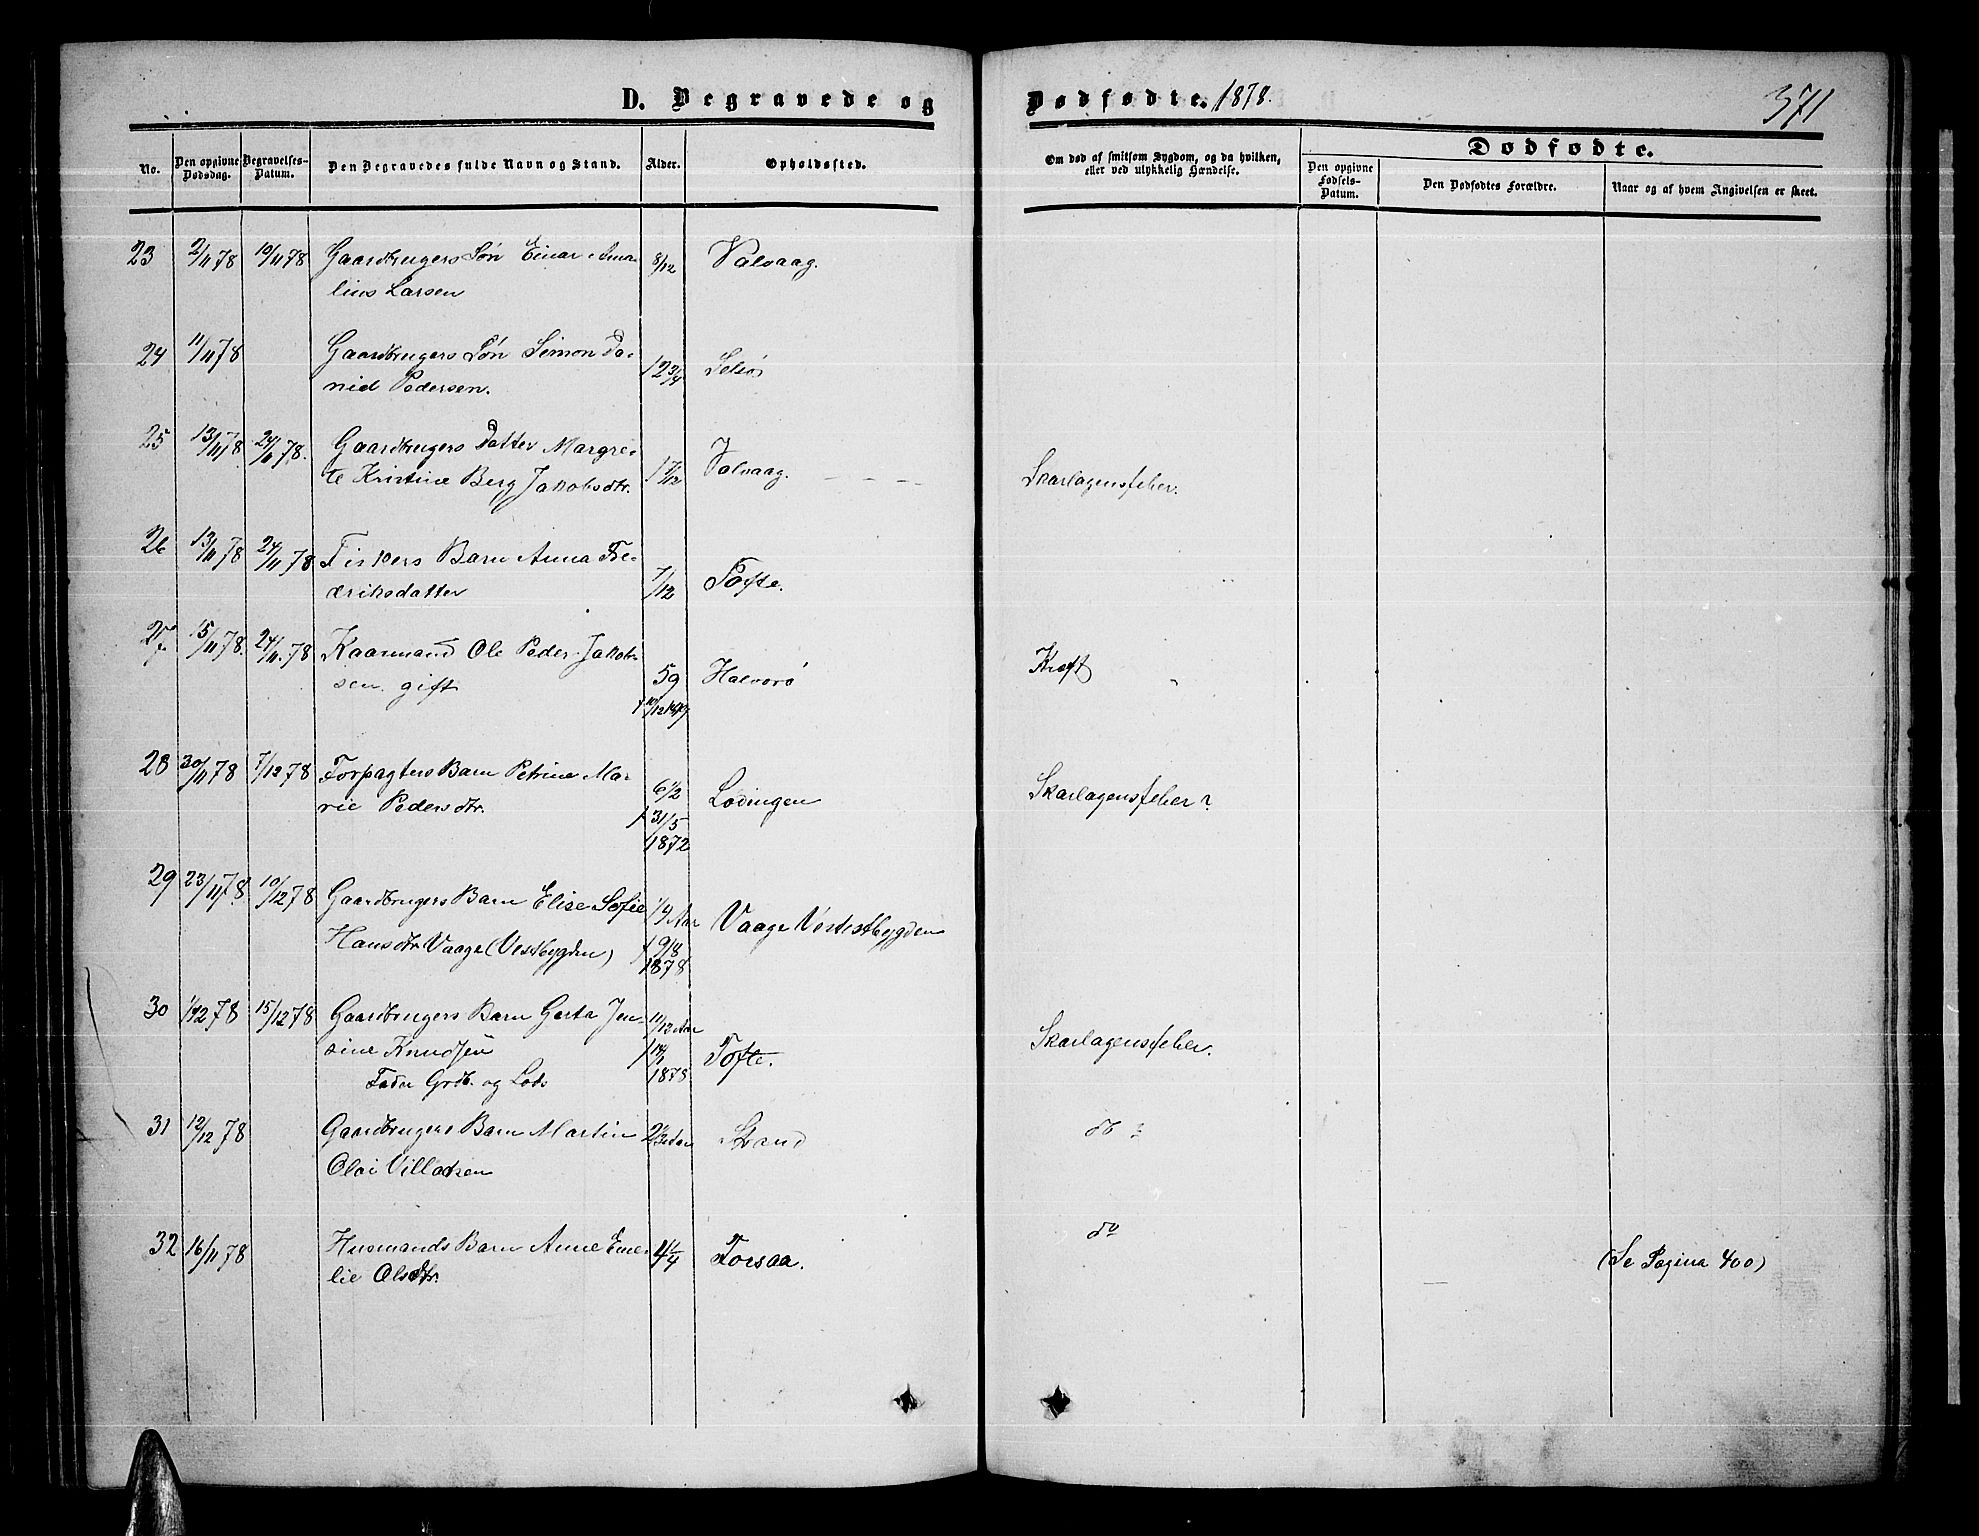 D. Begravede og Dødfødte. 1878. 371
No. Den opgivne Dødsdag. Begravelses-Datum. Den Begravedes fulde Navn og Stand. Alder. Opholdssted. Om død af smitsom Sygdom, og da hvilken, eller ved ulykkelig Hændelse. Dødfødte.
Den opgivne Fødsels-Datum. Den Dødfødtes Forældre. Naar og af hvem Angivelsen er skeet.
23 2/11 78 10/11 78 Gaardbrugers Søn Einar Ama- 8/12 Valvaag.
lius Larsen
24 11/11 78 Gaardbrugers Søn Simon Da-
niel Pedersen. 12 3/4
25 13/11 78 24/11 78. Gaardbrugers Datter Margre-
te Kristine Berg Jakobsdtr. 1 7/12 Valvaag. Skarlagensfeber.
26 13/11 78 24/11 78 Fiskers Barn Anna Fre-
deriksdatter 7/12 Tofte.
27. 15/11 78. 24/11. 78 Kaarmand Ole Peder Jakob-
sen. gift 59 Halvorø Kræft
28 30/11 78 7/12 78 Forpagters Barn Petrine Ma-
rie Pedersdtr. 6 1/2 Lødingen Skarlagensfeber?
f 31/5
1872
29 23/11 78. 10/12 78 Gaardbrugers Barn Elise Sofie 1/4 Aar Vaage Vestbygden
Hansdtr Vaage (Vestbygden) f 9/8
1878
30 1/12 78 15/12 78 Gaardbrugers Barn Gerta Jen- 11/12 Aar
sine Knudsen Tofte. Skarlagensfeber.
Fader Grdb. og Lods 1878
31 12/12 78 Gaardbrugers Barn Martin Strand do ?
Olai Villadsen
32 16/11 78 Husmands Barn Anne Eme- 4 1/4 Forsaa. do
lie Olsdtr. (Se Pagina 400)